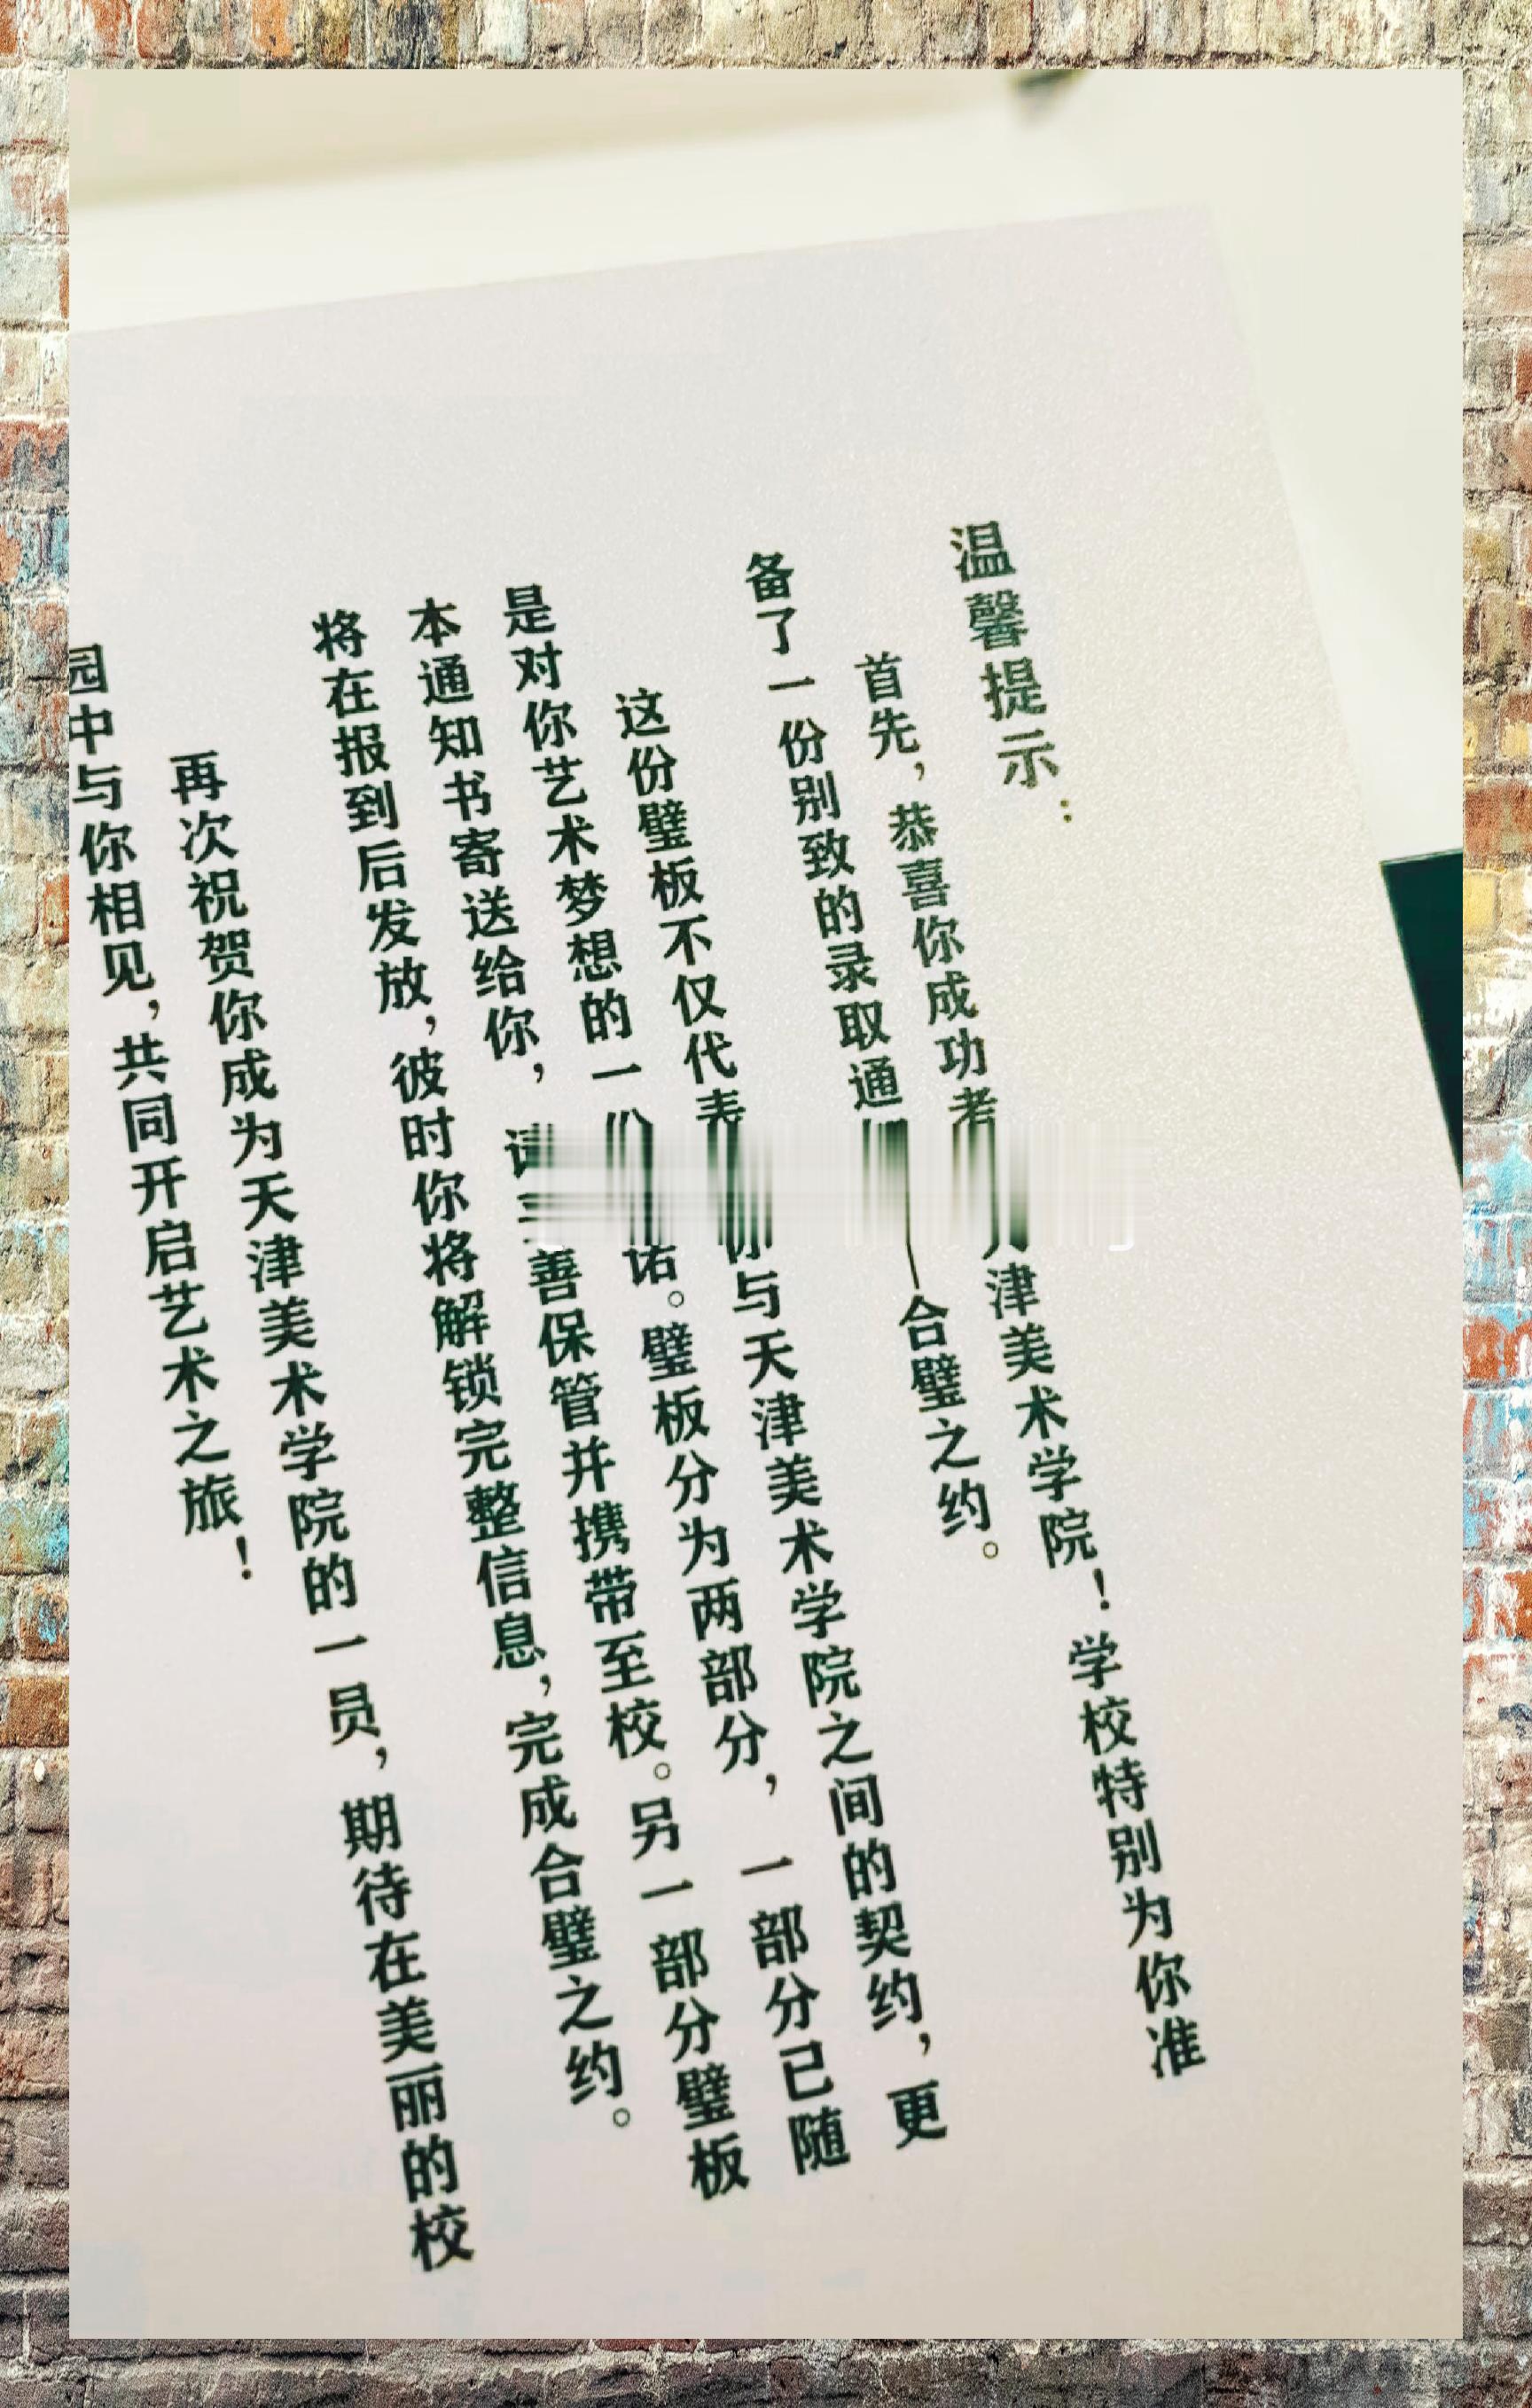 温馨提示：
首先，恭喜你成功 津美术学院！学校特别为你准
备了一份别致的录取通 ——合璧之约。
这份璧板不仅代表 你与天津美术学院之间的契约，更
是对你艺术梦想的一 诺。璧板分为两部分，一部分已随
本通知书寄送给你， 善保管并携带至校。另一部分璧板
将在报到后发放，彼时你将解锁完整信息，完成合璧之约。
再次祝贺你成为天津美术学院的一员，期待在美丽的校
园中与你相见，共同开启艺术之旅！